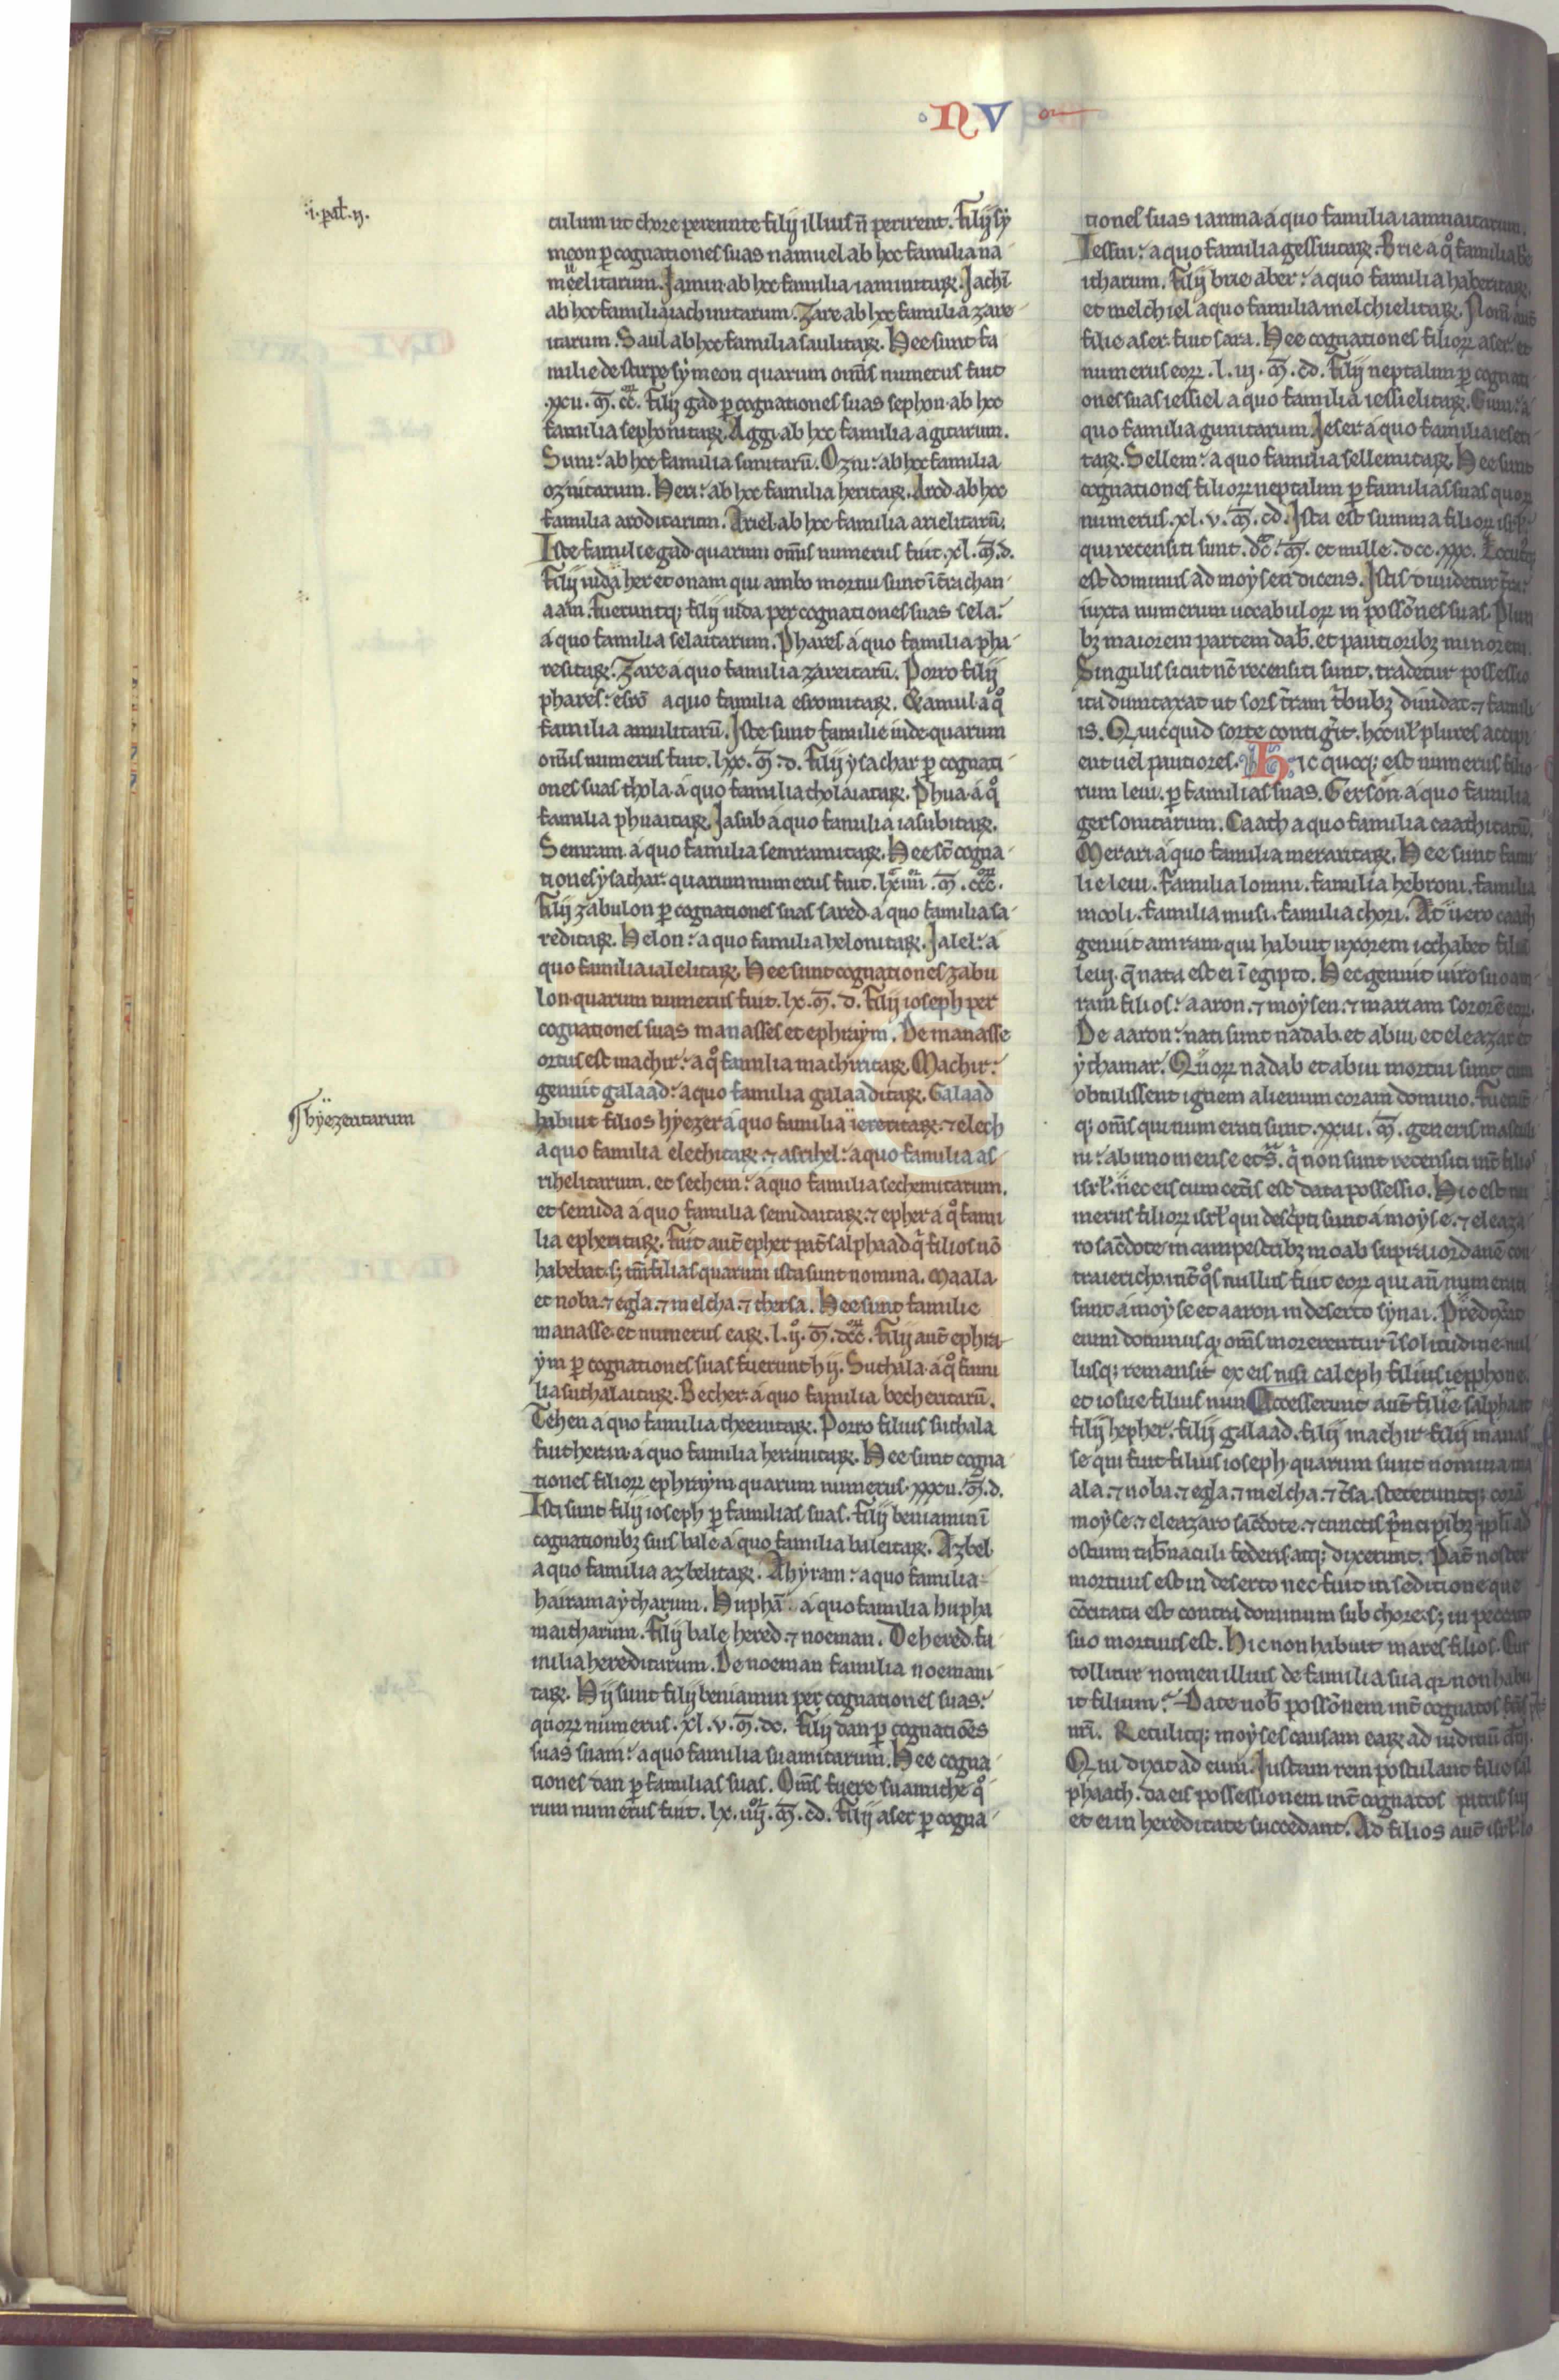 NV
.i. pal. ij.
culum ut chore pereunte filij illius n̄ perirent. Filij sy
meon p̲ cognationes suas namuel ab hoc familia na
muelitarum. Jamin ab hoc familia iaminitaꝝ. Jachī
ab hoc familia iachinitarum. Zare ab hoc familia zare
itarum. Saul ab hoc familia saulitaꝝ. Hee sunt fa
milie de stirpe symeon quarum om̄is numerus fuit
.xxii. m̄. cc. Filij gad p̲ cognationes suas sephon ab hoc
familia sephonitaꝝ. Aggi ab hoc familia agitarum.
Suni: ab hoc familia sunitarū. Ozni: ab hoc familia
oznitarum. Heri: ab hoc familia heritaꝝ. Arod ab hoc
familia aroditarum. Ariel ab hoc familia arielitarū.
Iste familie gad quarum om̄is numerus fuit .xl. m̄. d.
Filij iuda her et onam qui ambo mortui sunt ī t̄ra chan
aam. Fueruntq; filij iuda per cognationes suas sela:
a quo familia selaitarum. Phares a quo familia pha
resitaꝝ. Zare a quo familia zareitarū. Porro filij
phares: esrō a quo familia esromitaꝝ. & amul a qͦ
familia amulitarū. Iste sunt familie iude quarum
om̄is numerus fuit .lxx. m̄. d. Filij ysachar p̲ cognati
ones suas thola a quo familia tholaiataꝝ. Phua a qͦ
familia phuaitaꝝ. Jasub a quo familia iasubitaꝝ.
Semram a quo familia semramitaꝝ. Hee st̄ cogna
tiones ysachar quarum numerus fuit .lxiiii. m̄. ccc.
Filij zabulon p̲ cognationes suas sared a quo familia sa
reditaꝝ. Helon: a quo familia helonitaꝝ. Jalel: a
quo familia ialelitaꝝ. Hee sunt cognationes zabu
lon quarum numerus fuit .lx. m̄. d. Filij ioseph per
cognationes suas manasses et ephraym. De manasse
ortus est machir: a qͦ familia machiritaꝝ. Machir:
genuit galaad: a quo familia galaaditaꝝ. Galaad
¶ hÿezeritarum
habuit filios hyezer a quo familia ïereritaꝝ. ⁊ elech
a quo familia elechitaꝝ. ⁊ asrihel: a quo familia as
rihelitarum. et sechem: a quo familia sechemitarum.
et semida a quo familia semidaitaꝝ. ⁊ epher a qͦ fami
lia epheritaꝝ. Fuit aut̄ epher pat̄ salphaad q̄ filios nō
habebat. s; tm̄ filias quarum ista sunt nomina. Maala
et noba. ⁊ egla. ⁊ melcha. ⁊ thersa. Hee sunt familie
manasse et numerus eaꝝ. l. ij. m̄. dcc. Filij aut̄ ephra
ym p̲ cognationes suas fuerunt hij. Suthala a qͦ fami
lia suthalaitaꝝ. Becher a quo familia becheritarū.
Tehen a quo familia theenitaꝝ. Porro filius suthala
fuit heran a quo familia heranitaꝝ. Hee sunt cogna
tiones filioꝝ ephraym quarum numerus .xxxii. m̄. d.
Isti sunt filij ioseph p̲ familias suas. Filij beniamin ī
cognationibꝫ suis bale a quo familia baleitaꝝ. Azbel
a quo familia azbelitaꝝ. Ahyram: a quo familia
hairamaytharum. Huphā a quo familia hupha
maitharum. Filij bale hered. ⁊ noeman. De hered fa
milia hereditarum. De noeman familia noemani
taꝝ. Hij sunt filij beniamin per cognationes suas:
quoꝝ numerus .xl. v. m̄. dc. Filij dan p̲ cognatiōes
suas suam: a quo familia suamitarum. Hee cogna
tiones dan p̲ familias suas. Om̄s fuere suamithe qͦ
rum numerus fuit .lx. iiij. m̄. cd. Filij aser p̲ cogna
tiones suas iamna a quo familia iamnaitarum.
Iessui: a quo familia gessuitaꝝ. Brie a qͦ familia bre
itharum. Filij brie aber: a quo familia haberitaꝝ.
et melchiel a quo familia melchielitaꝝ. Nom̄ aut̄
filie aser fuit sara. Hee cognationes filioꝝ aser. et
numerus eoꝝ .l. iij. m̄. cd. Filij neptalim p̲ cognati
ones suas iessiel a quo familia iessielitaꝝ. Guni: a
quo familia gunitarum. Jeser a quo familia ieseri
taꝝ. Sellem: a quo familia sellemitaꝝ. Hee sunt
cognationes filioꝝ neptalim p̲ familias suas quoꝝ
numerus .xl. v. m̄. cd. Ista est summa filioꝝ isrl̄.
qui recensiti sunt. dc. m̄. et mille. dcc. xxx. Locutusq;
est dominus ad moysen dicens. Istis diuidetur t̄ra:
iuxta numerum uocabuloꝝ in possōnes suas. Pluri
bꝫ maiorem partem dab̄. et pautioribꝫ minorem.
Singulis sicut nō recensiti sunt. tradetur possessio
ita dumtaxat ut sors t̄ram t̄bubꝫ diuidat. ⁊ famili
is. Quicquid sorte contigit̄. hoc ul̄ plures accipi
ent uel pautiores. Hic quoq; est numerus filio
rum leui. p̲ familias suas. Gerson a quo familia
gersonitarum. Caath a quo familia caathitarū.
Merari a quo familia meraritaꝝ. Hee sunt fami
lie leui. Familia lomni. familia hebroni. familia
mooli. familia musi. familia chori. At uero caath
genuit amram qui habuit uxorem iochabet filiā
leui. q̄ nata est ei ī egipto. Hec genuit uiro suo am
ram filios: aaron. ⁊ moysen. ⁊ mariam sororē eoꝝ.
De aaron: nati sunt nadab. et abiu. et eleazar et
ythamar. Quoꝝ nadab et abiu mortui sunt cum
obtulissent ignem alienum coram domino. Fuerūt
q; om̄s qui numerati sunt .xxiii. m̄. generis masculi
ni: ab uno mense et s̄. q̄ non sunt recensiti int̄ filios
isrl̄. nec eis cum cet̄is est data possessio. Hic est nu
merus filioꝝ isrl̄ qui desc̄pti sunt a moyse. ⁊ eleaza
ro sac̄dote in campestribꝫ moab supra iordanē con
tra iericho. int̄ qͦs nullus fuit eoꝝ qui an̄ numerati
sunt a moyse et aaron in deserto synai. Predix̄at
enim dominus q̲ om̄s morerentur ī solitudine. nul
lusq; remansit ex eis nisi caleph filius iepphone.
et iosue filius nun. Accesserunt aut̄ filie salphaat
filij hepher. filij galaad. filij machir. filij manas
se qui fuit filius ioseph quarum sunt nomina ma
ala. ⁊ noba. ⁊ egla. ⁊ melcha. ⁊ t̄sa. steteruntq; corā
moyse. ⁊ eleazaro sac̄dote. ⁊ cunctis p̄ncipibꝫ pp̄li ad
ostium tab̄naculi federis. atq; dixerunt. Pat̄ noster
mortuus est in deserto nec fuit in seditione que
cōcitata est contra dominum sub chore. s; in peccato
suo mortuus est. Hic non habuit mares filios. Cur
tollitur nomen illius de familia sua q̲ non habu
it filium: Date nob̄ possōnem int̄ cognatos
Retulitq; moyses causam eaꝝ ad iuditiū
Qui dixit ad eum. Justam rem postulant filie sal
phaath. da eis possessionem int̄ cognatos patris sui
et ei in hereditate succedant. Ad filios aut̄ isrl̄ lo